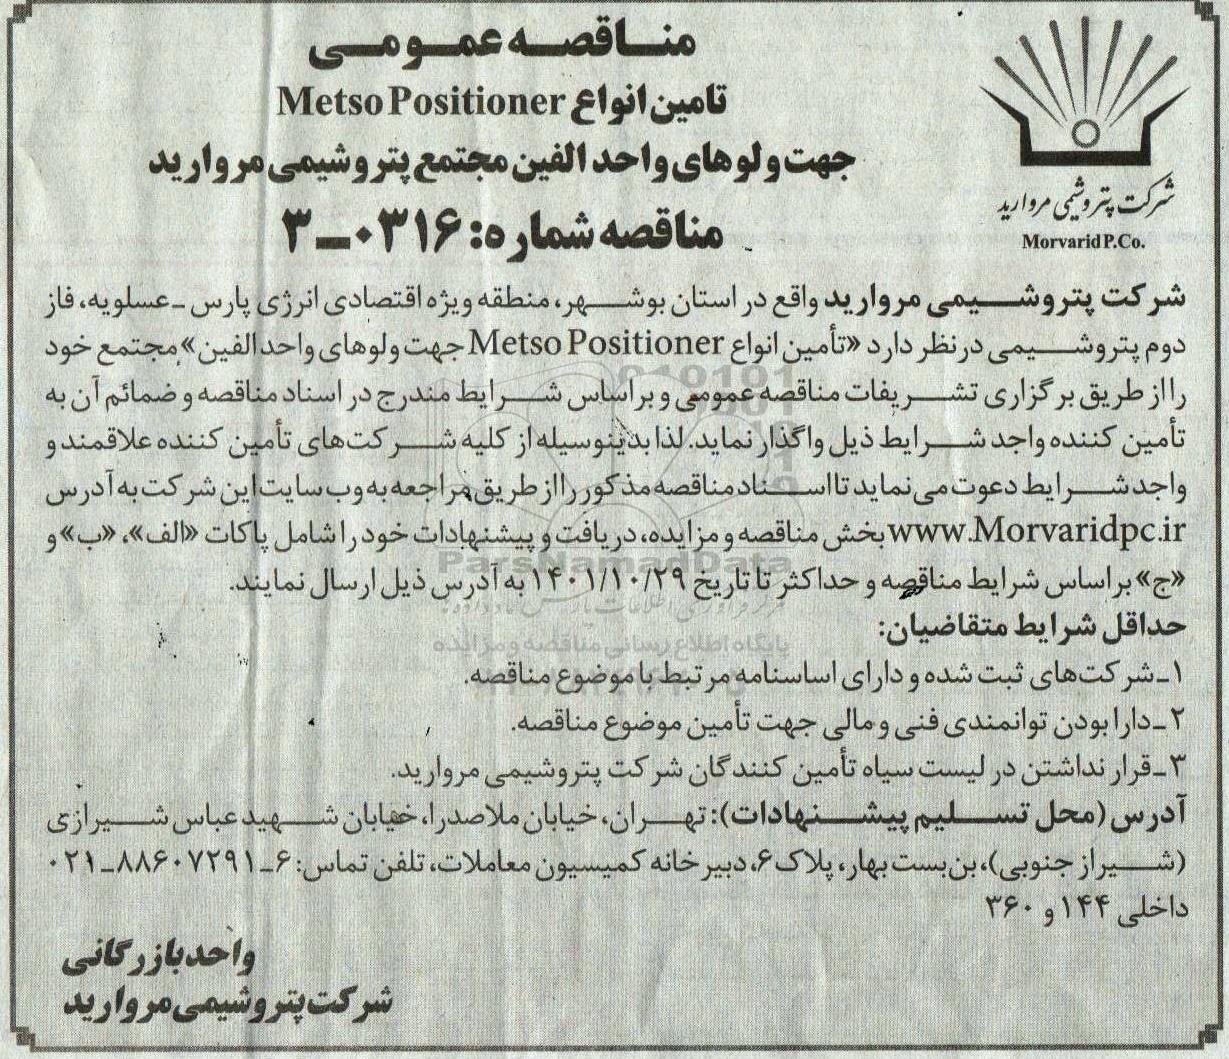 مناقصه عمومی
تامین انواع Metso Positioner
جهت ولوهای واحد الفین مجتمع پتروشیمی مروارید
مناقصه شماره: ۰۳۱۶-۳
شرکت پتروشیمی مروارید
Morvarid P.Co.
شرکت پتروشیمی مروارید واقع در استان بوشهر، منطقه ویژه اقتصادی انرژی پارس - عسلویه، فاز
دوم پتروشیمی در نظر دارد «تأمین انواع Metso Positioner جهت ولوهای واحد الفین» مجتمع خود
را از طریق برگزاری تشریفات مناقصه عمومی و براساس شرایط مندرج در اسناد مناقصه و ضمائم آن به
تأمین کننده واجد شرایط ذیل واگذار نماید. لذا بدینوسیله از کلیه شرکت‌های تأمین کننده علاقمند و
واجد شرایط دعوت می‌نماید تا اسناد مناقصه مذکور را از طریق مراجعه به وب سایت این شرکت به آدرس
www.Morvaridpc.ir بخش مناقصه و مزایده، دریافت و پیشنهادات خود را شامل پاکات «الف»، «ب» و
«ج» براساس شرایط مناقصه و حداکثر تا تاریخ ۱۴۰۱/۱۰/۲۹ به آدرس ذیل ارسال نمایند.
حداقل شرایط متقاضیان:
۱- شرکت‌های ثبت شده و دارای اساسنامه مرتبط با موضوع مناقصه.
۲- دارا بودن توانمندی فنی و مالی جهت تأمین موضوع مناقصه.
۳- قرار نداشتن در لیست سیاه تأمین کنندگان شرکت پتروشیمی مروارید.
آدرس (محل تسلیم پیشنهادات): تهران، خیابان ملاصدرا، خیابان شهید عباس شیرازی
(شیراز جنوبی)، بن‌بست بهار، پلاک ۶، دبیرخانه کمیسیون معاملات، تلفن تماس: ۶-۸۸۶۰۷۲۹۱-۰۲۱
داخلی ۱۴۴ و ۳۶۰
واحد بازرگانی
شرکت پتروشیمی مروارید
ParsNamadData
پایگاه اطلاع رسانی مناقصه و مزایده